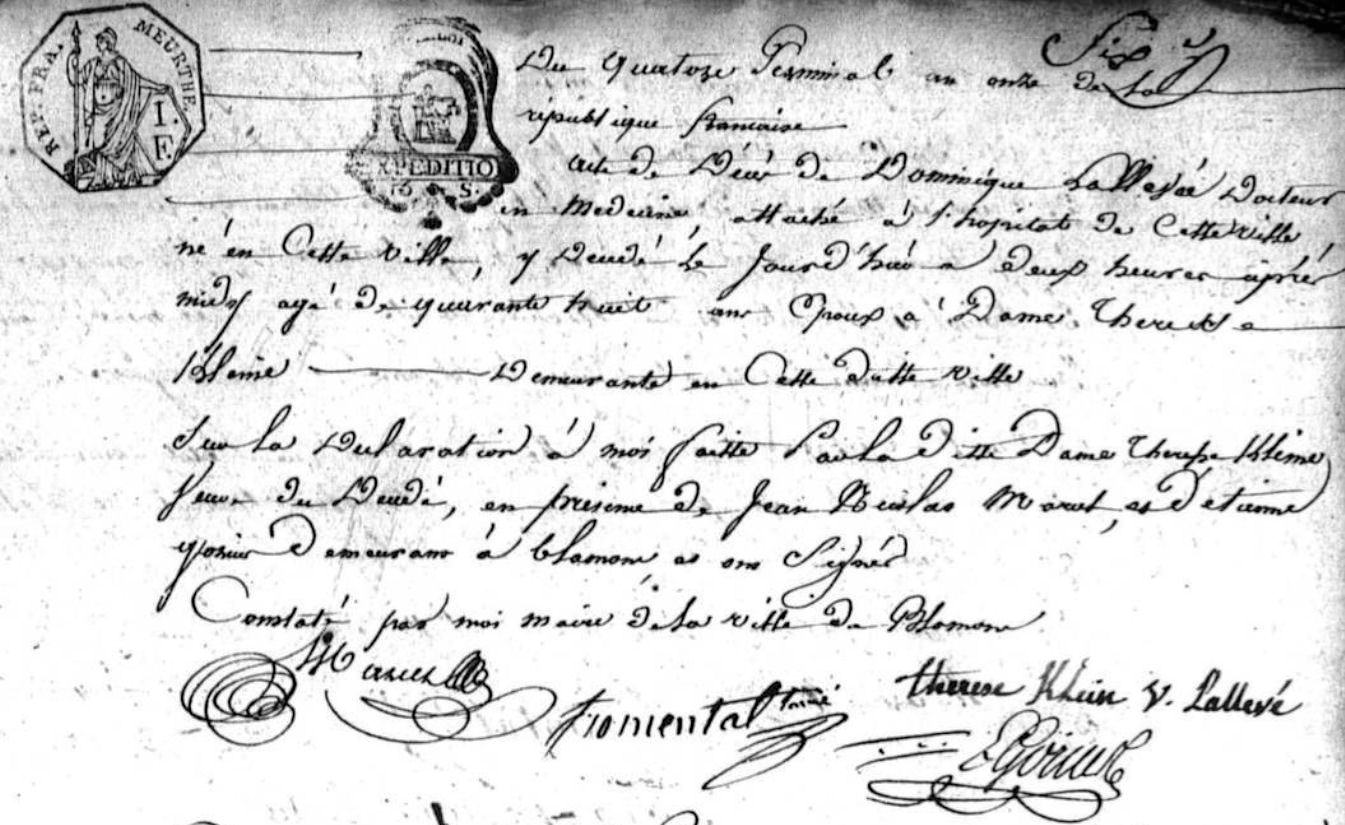 REP. FRA. MEURTHE
1. F.
XPEDITIO
Six
Du quatorze Germinal an onze de la
république francaise
acte de Décés de Dominique Lallevée Docteur
en Medecine, attaché à l'hopital de Cette ville,
né en Cette ville, y Décédé le Jourd'hui a deux heures après
midy agé de quarante huit ans Epoux a Dame Therese
Kleine Demeurante en Cette ditte ville
Sur la Déclaration à moi faitte Par la Ditte Dame Therese Kleine
veuve du Décédé, en présence de Jean Nicolas Marut, et d'Etienne
gorius Demeurant à blamont et ont Signés
Constaté par moi maire de la ville de Blamont
Marut
fromental maire
therese Klein V. Lallevé
E Gorius